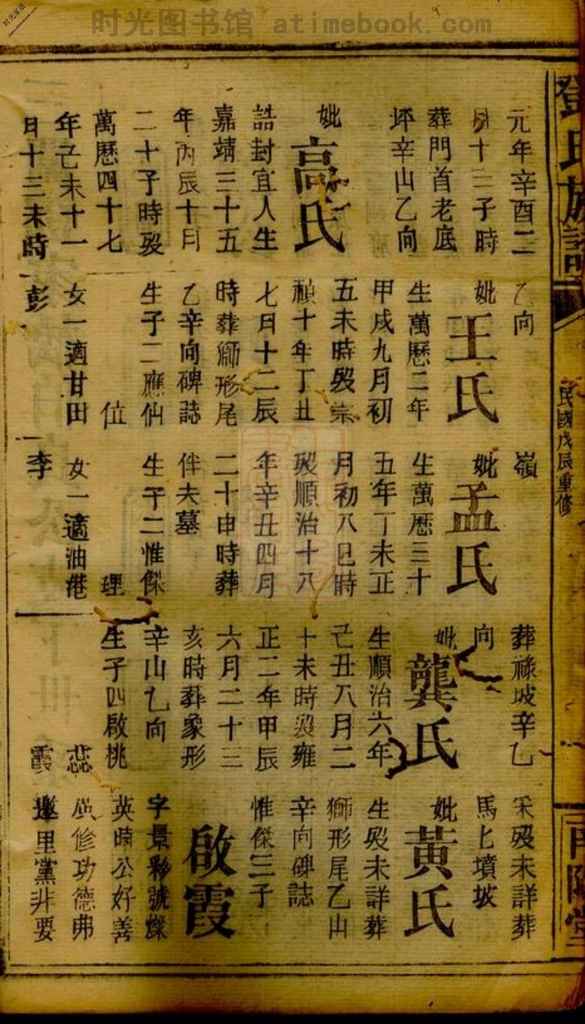 时光图书馆 atimebook.com
鄧氏族譜
民國戊辰重修
南陽堂
元年辛酉二
月十三子時
葬門首老底
坪辛山乙向
妣高氏
誥封宜人生
嘉靖三十五
年丙辰十月
二十子時歿
萬曆四十七
年己未十一
月十三未時
乙向
妣王氏
生萬曆二年
甲戌九月初
五未時歿崇
禎十年丁丑
七月十二辰
時葬獅形尾
乙辛向碑誌
生子二應仙
位
女一適甘田
彭
嶺
妣孟氏
生萬曆三十
五年丁未正
月初八巳時
歿順治十八
年辛丑四月
二十申時葬
伴夫墓
生子二惟傑
理
女一適油港
李
葬祿坡辛乙
向
妣龔氏
生順治六年
己丑八月二
十未時歿雍
正二年甲辰
六月二十三
亥時葬象形
辛山乙向
生子四啟桃
蕊
霞
釆歿未詳葬
馬匕墳坡
妣黃氏
生歿未詳葬
獅形尾乙山
辛向碑誌
惟傑三子
啟霞
字景彩號燦
英時公好善
修功德弗
里黨非要